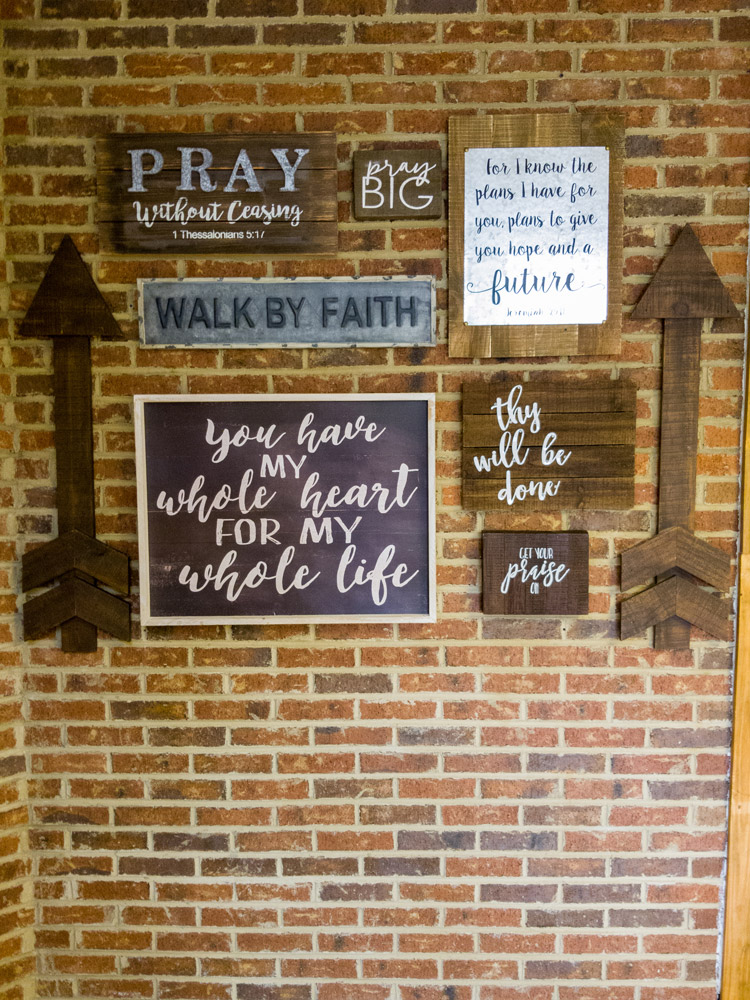 PRAY
Without Ceasing
1 Thessalonians 5:17
pray
BIG
for I know the
plans I have for
you, plans to give
you hope and a
future
WALK BY FAITH
You have
MY
whole heart
FOR MY
whole life
thy
will be
done
GET YOUR
praise
ON